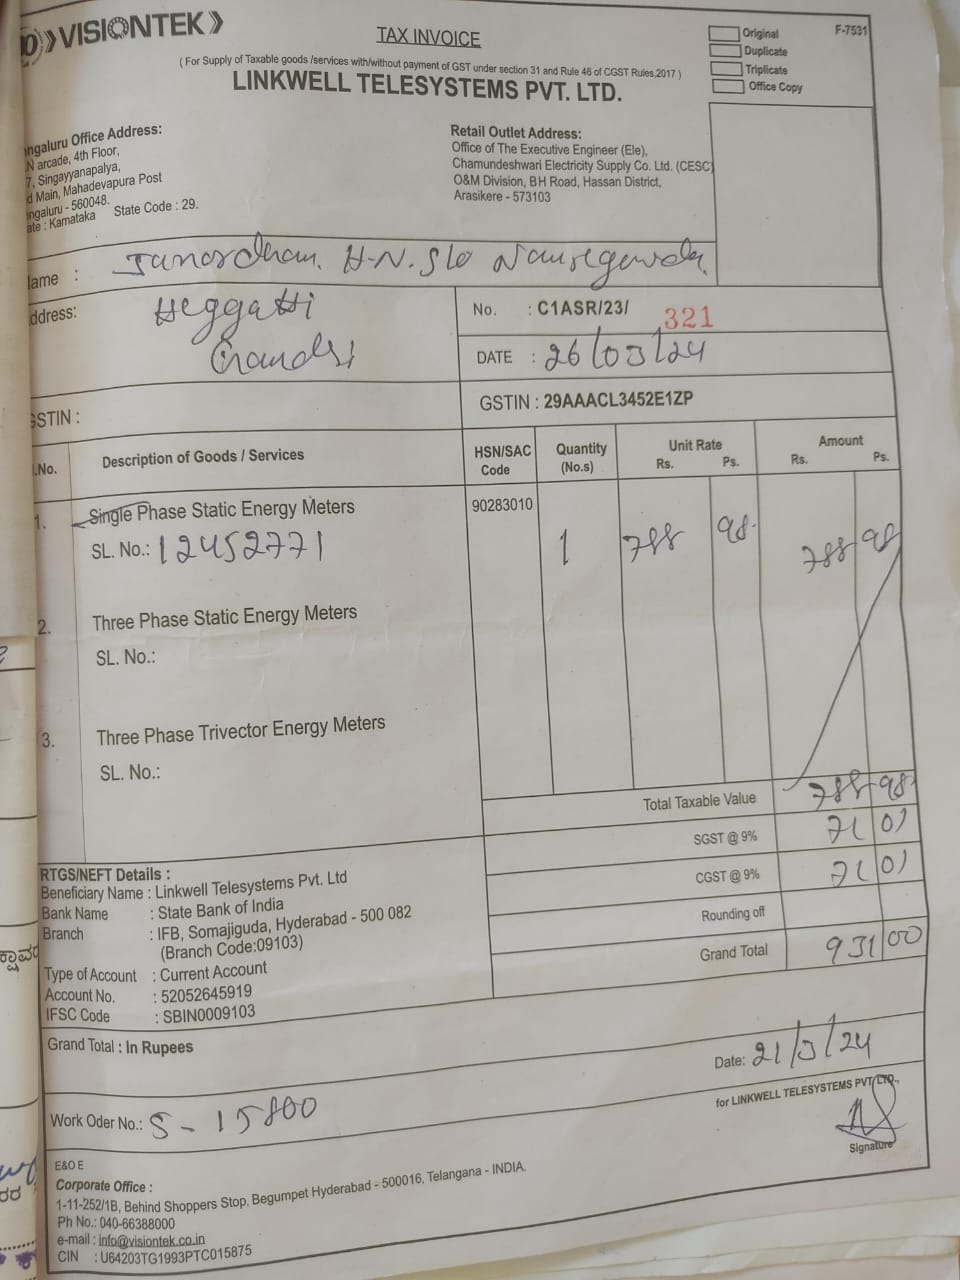 VISIONTEK
TAX INVOICE
F-7531
Original
Duplicate
Triplicate
Office Copy
( For Supply of Taxable goods /services with/without payment of GST under section 31 and Rule 46 of CGST Rules,2017 )
LINKWELL TELESYSTEMS PVT. LTD.
ngaluru Office Address:
N arcade, 4th Floor,
7, Singayyanapalya,
d Main, Mahadevapura Post
ngaluru - 560048.
ate : Karnataka State Code : 29.
Retail Outlet Address:
Office of The Executive Engineer (Ele),
Chamundeshwari Electricity Supply Co. Ltd. (CESC)
O&M Division, BH Road, Hassan District,
Arasikere - 573103
ame : Janardhan. H-N. S/o
ddress: Heggatti
No. : C1ASR/23/ 321
DATE : 26/03/24
GSTIN :
GSTIN : 29AAACL3452E1ZP
.No. Description of Goods / Services HSN/SAC Code Quantity (No.s) Unit Rate Rs. Ps. Amount Rs. Ps.
1. Single Phase Static Energy Meters 90283010
SL. No.: 12452771 1 788 98 788 98
2. Three Phase Static Energy Meters
SL. No.:
3. Three Phase Trivector Energy Meters
SL. No.:
Total Taxable Value 788 98
SGST @ 9% 71 01
CGST @ 9% 71 01
Rounding off
Grand Total 931 00
RTGS/NEFT Details :
Beneficiary Name : Linkwell Telesystems Pvt. Ltd
Bank Name : State Bank of India
Branch : IFB, Somajiguda, Hyderabad - 500 082
(Branch Code:09103)
Type of Account : Current Account
Account No. : 52052645919
IFSC Code : SBIN0009103
Grand Total : In Rupees
Date: 21/3/24
Work Oder No.: S - 15800
for LINKWELL TELESYSTEMS PVT LTD.,
Signature
E&O E
Corporate Office :
1-11-252/1B, Behind Shoppers Stop, Begumpet Hyderabad - 500016, Telangana - INDIA.
Ph No.: 040-66388000
e-mail : info@visiontek.co.in
CIN : U64203TG1993PTC015875